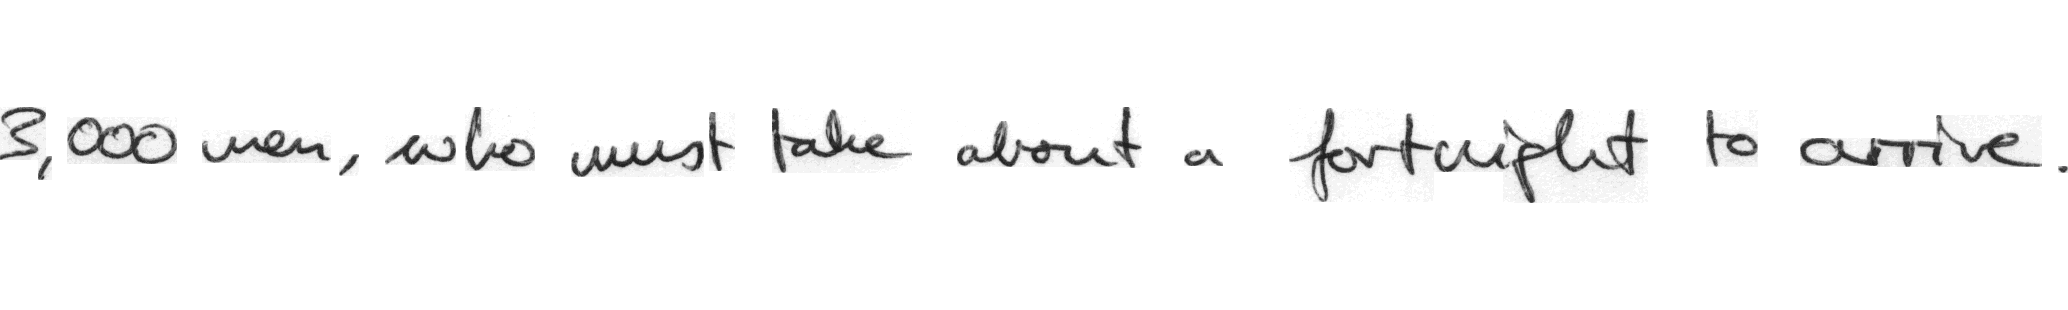 3,000 men, who must take about a fortnight to arrive.